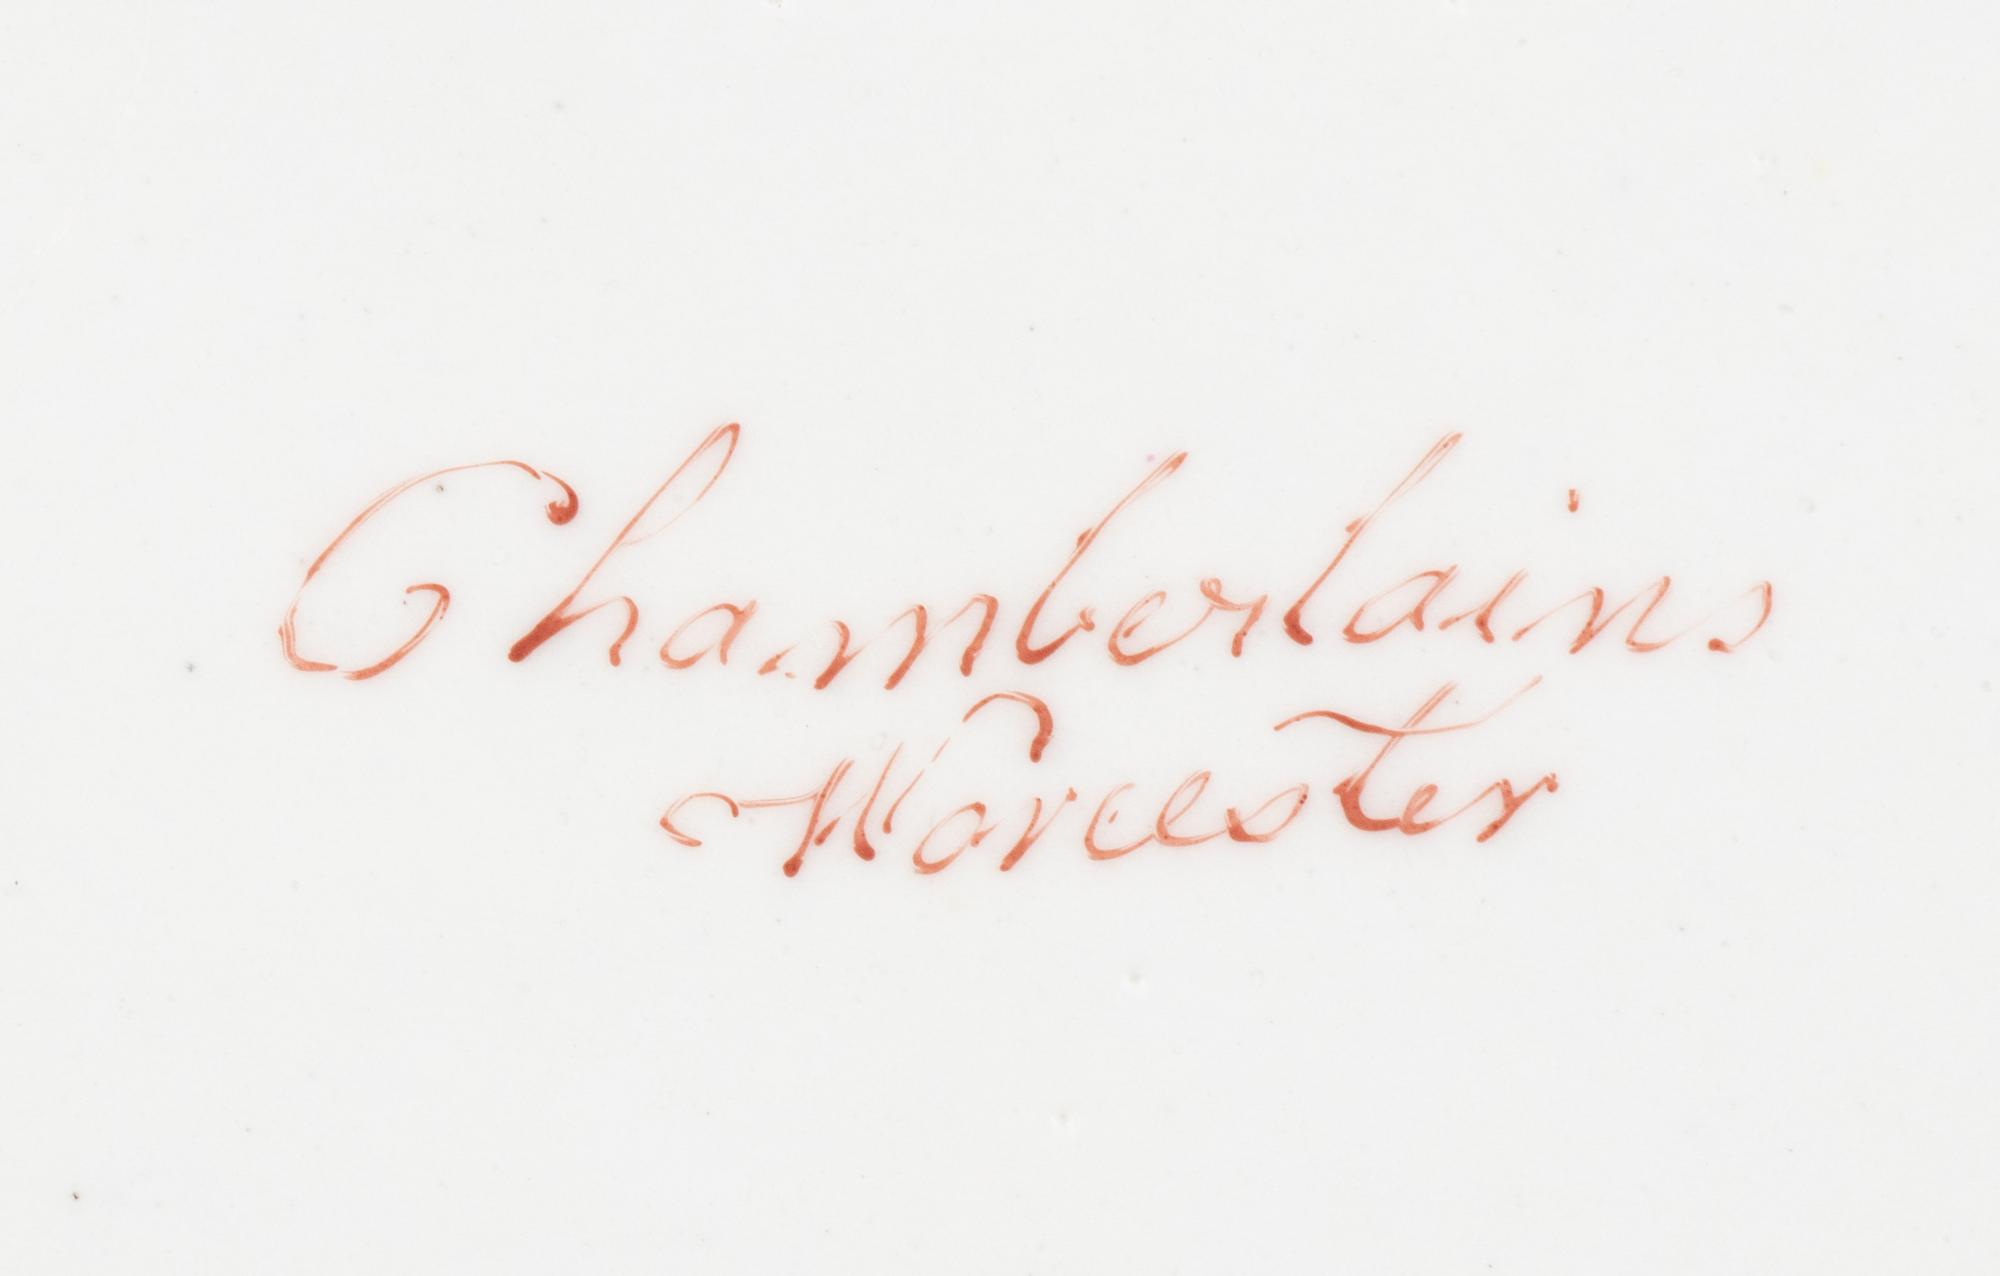 Chamberlains
Worcester